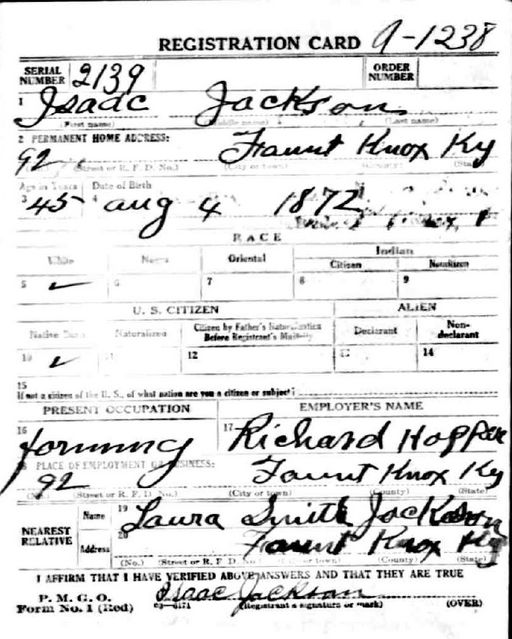 REGISTRATION CARD A-1238
SERIAL NUMBER 2139 ORDER NUMBER
1 Isaac Jackson
(First name) (Middle name) (Last name)
2 PERMANENT HOME ADDRESS:
92 Faunt Knox Ky
(Street or R. F. D. No.) (City or town) (County) (State)
Age in Years Date of Birth
3 45 4 Aug 4 1872
RACE
White Negro Oriental Indian
Citizen Noncitizen
5 ✓ 6 7 8 9
U. S. CITIZEN ALIEN
Native Born Naturalized Citizen by Father's Naturalization Before Registrant's Majority Declarant Non-declarant
10 ✓ 11 12 13 14
15
If not a citizen of the U. S., of what nation are you a citizen or subject?
PRESENT OCCUPATION EMPLOYER'S NAME
16 17 Richard
18 PLACE OF EMPLOYMENT OR BUSINESS:
92 Faunt Knox Ky
(Street or R. F. D. No.) (City or town) (County) (State)
NEAREST RELATIVE Name 19 Laura Smith Jackson
Address 20 Faunt Knox Ky
(No.) (Street or R. F. D. No.) (City or town) (County) (State)
I AFFIRM THAT I HAVE VERIFIED ABOVE ANSWERS AND THAT THEY ARE TRUE
P. M. G. O. Isaac Jackson
Form No. 1 (Red) 03—6171 (Registrant's signature or mark) (OVER)